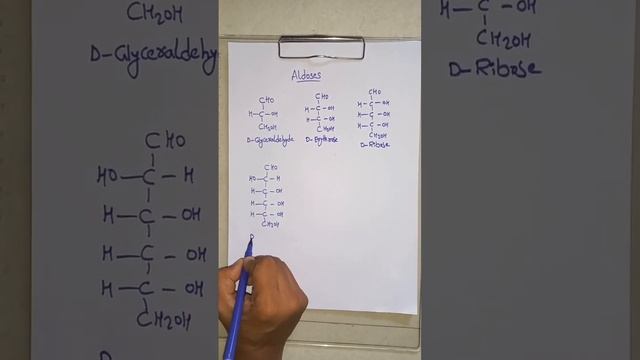 Aldoses
CHO
H-C-OH
CH2OH
D-Glyceraldehyde
CHO
H-C-OH
H-C-OH
CH2OH
D-Erythrose
CHO
H-C-OH
H-C-OH
H-C-OH
CH2OH
D-Ribose
CHO
HO-C-H
H-C-OH
H-C-OH
H-C-OH
CH2OH
D
CH2OH
D-Glyceraldehy
CHO
HO-C-H
H-C-OH
H-C-OH
H-C-OH
CH2OH
H-C-OH
CH2OH
D-Ribose